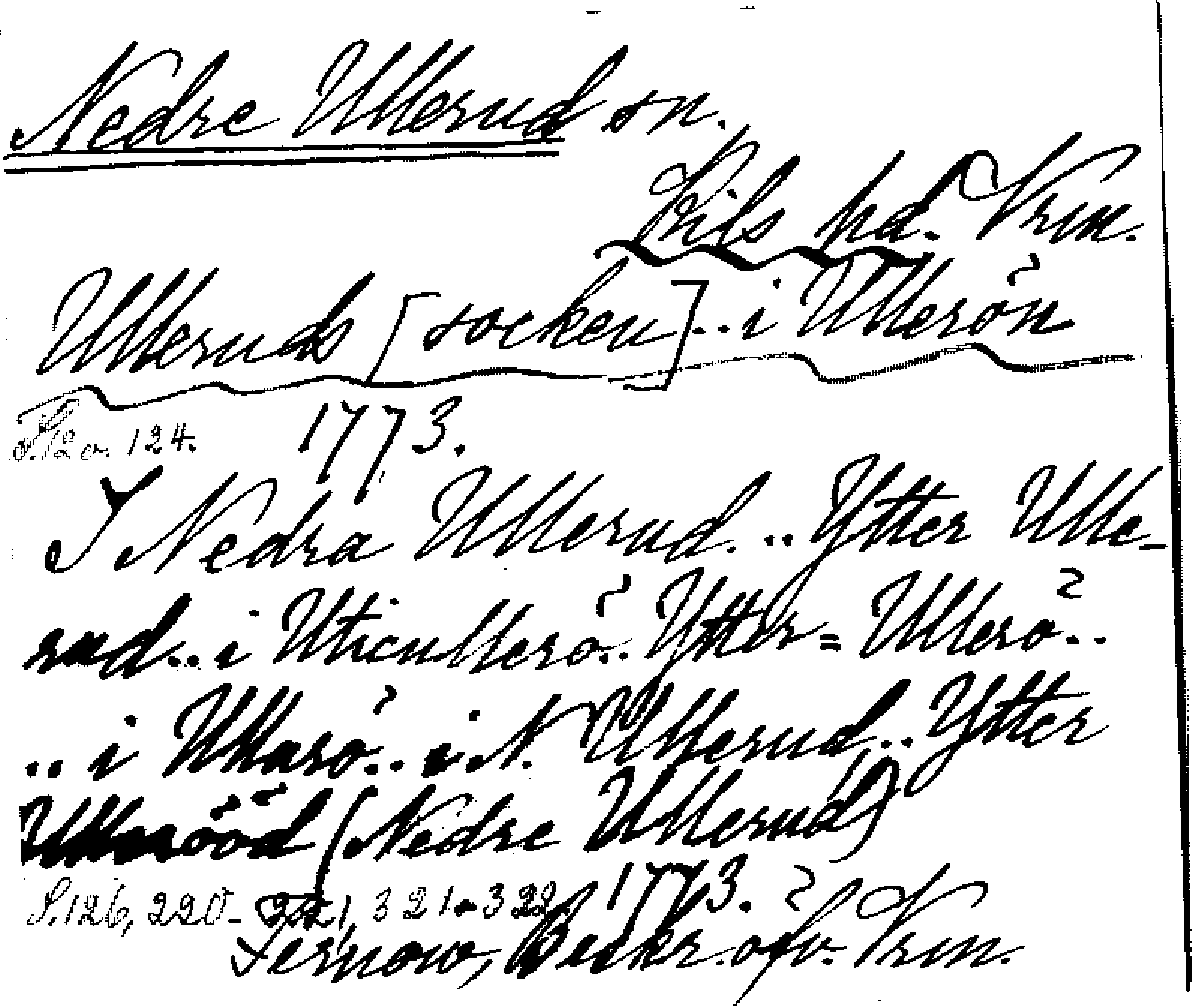 Nedre Ullerud sn.
Kils hd. Vrm.
Ulleruds [socken] .. i Ullerön
S. 120. 124. 1773.
I Nedra Ullerud. .. Ytter Ulle-
rud .. i Uticullerö .. Ytter = Ullerö ..
.. i Ullarö .. i N. Ullerud .. Ytter
Ullerööd (Nedre Ullerud)
S. 126, 220- 321-322. 1773.
Fernow, Beskr. öfv. Vrm.